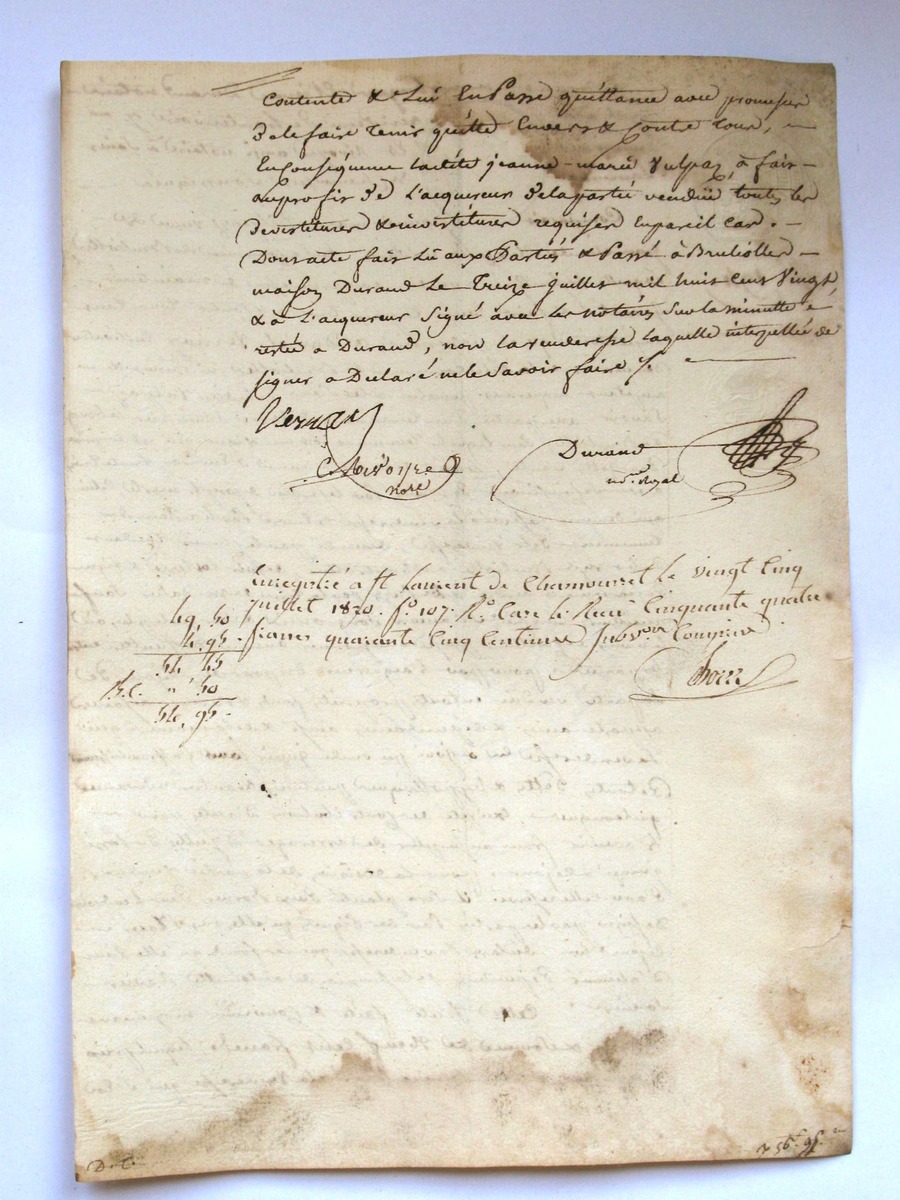 contente & lui en passe quittance avec promesse
de le faire tenir quitte envers & contre tous, —
En conséquence ladite jeanne-marie Vulpaz à fait —
au profit de l'acquereur de la partie vendüe toutes les
devestitures & investitures requises en pareil cas. —
Dont acte fait lû aux Parties & Passé à Brullioles —
maison Durand Le Treize juillet mil huit cent Vingt,
& à L'acquereur signé avec les notaires sur la minutte
restée a Durand, non la venderesse laquelle interpellée de
signer a déclaré ne le savoir faire ./.
Durand
nore
nore. Royal
Enregistré à st Laurent de Chamousset le vingt Cinq
juillet 1820. fo. 107. Ro. Case 1e. Recu Cinquante quatre
francs quarante Cinq Centimes Subvon Comprise
49, 50
4, 95
54 45
" 50
54, 95.